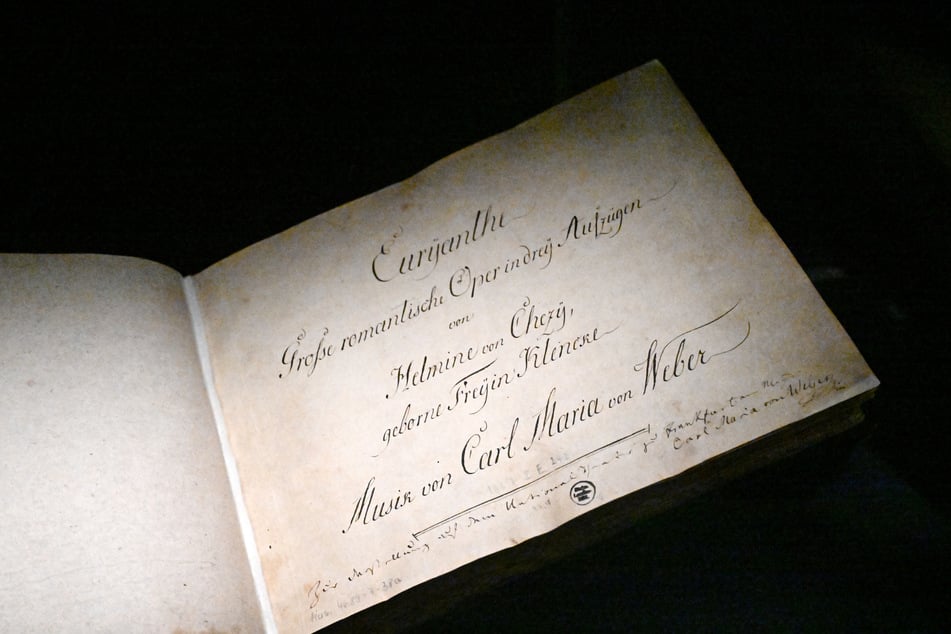 Eurÿanthe
Große romantische Oper in dreÿ Aufzügen
von
Helmine von Chezÿ,
geborne Freÿin Klencke
Musik von Carl Maria von Weber
auf dem National Theater zu Frankfurt a. M.
Carl Maria von Weber